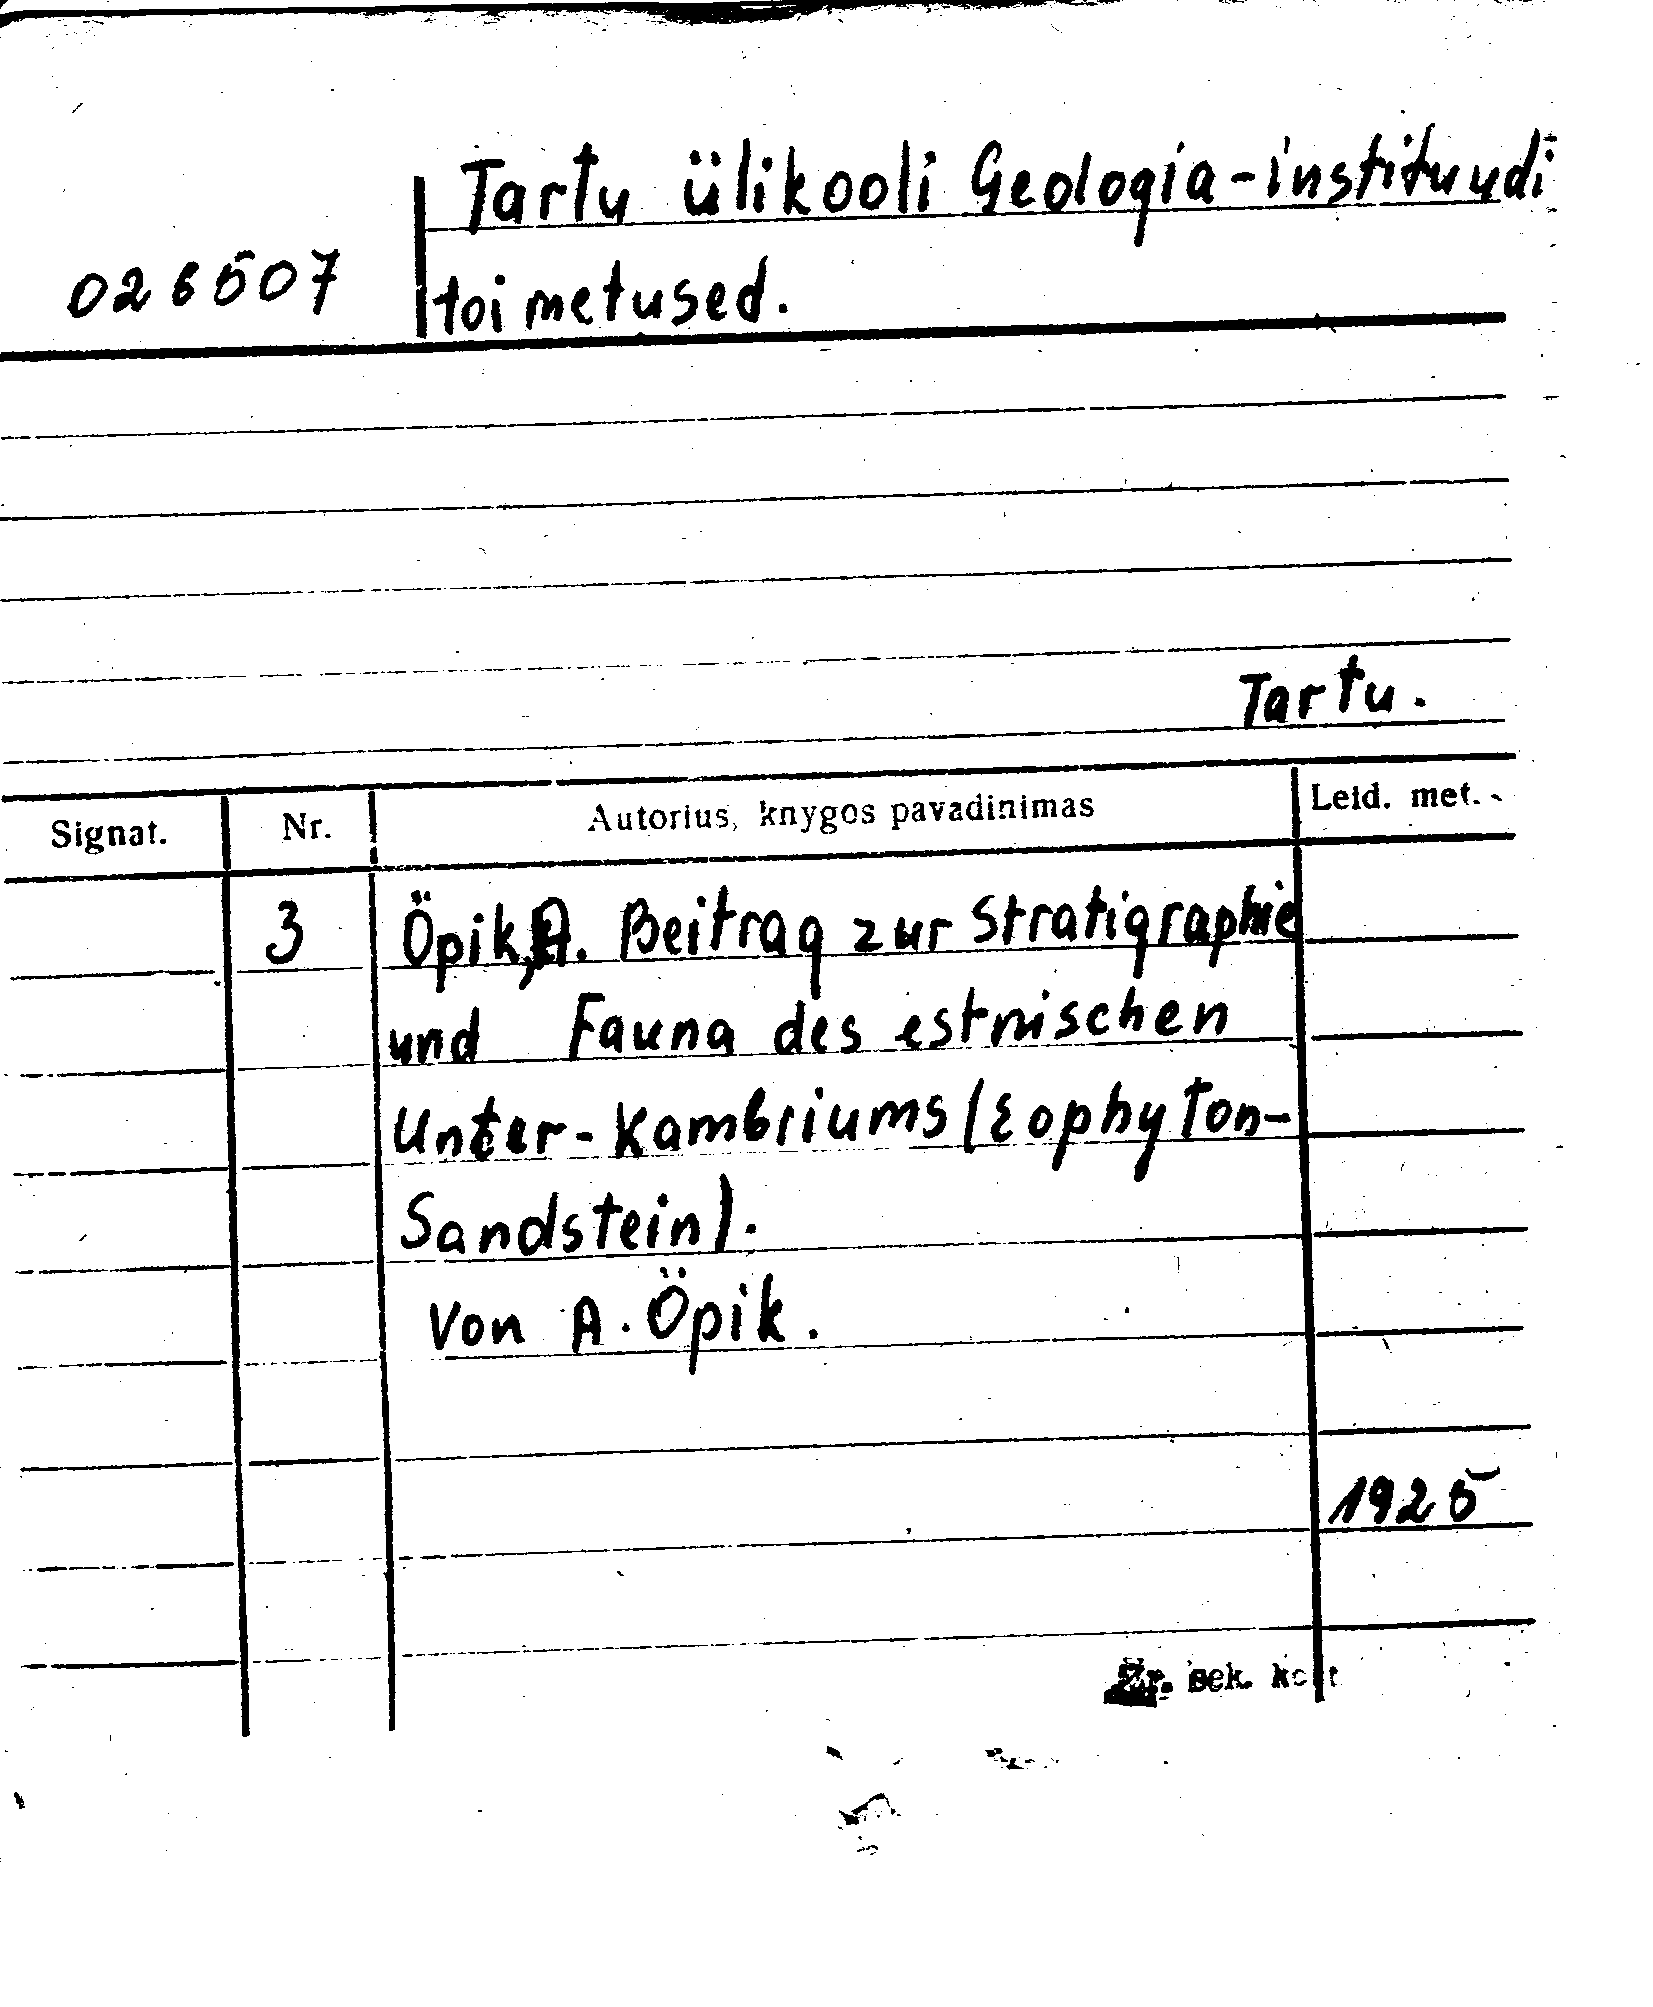 Tartu ülikooli Geologia-instituudi
026507
toimetused.
Tartu.
Signat. Nr. Autorius, knygos pavadinimas Leid. met.
3 Öpik, A. Beitrag zur Stratigraphie
und Fauna des estnischen
Unter-Kambriums (Eophyton-
Sandstein).
Von A. Öpik.
1925
Žr. sek. kort